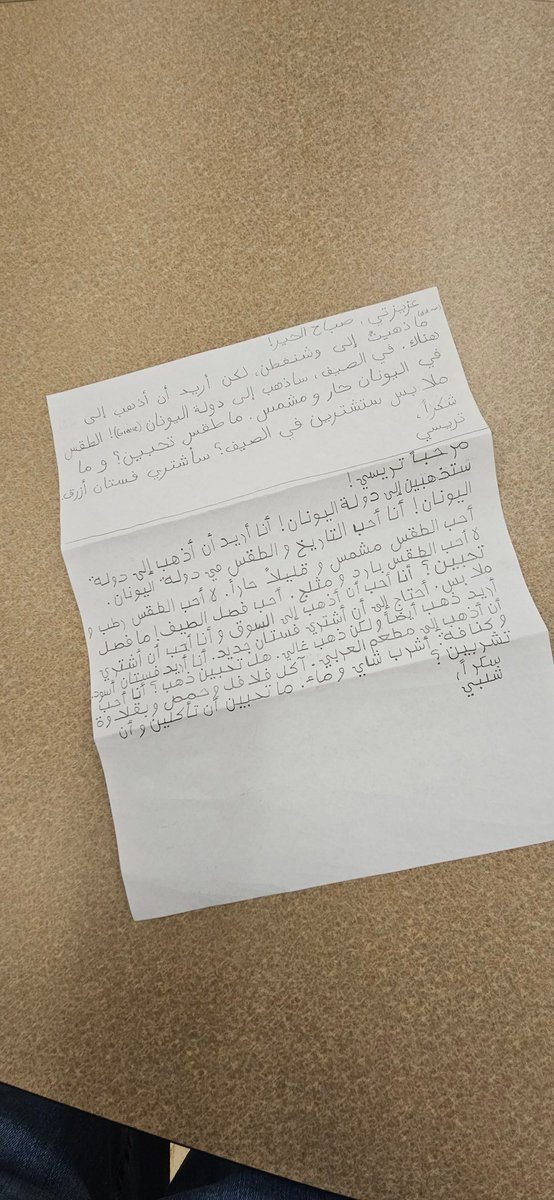 عزيزتي، صباح الخير!
ما ذهبتُ إلى وشنغطن، لكن أريد أن أذهب إلى
هناك. في الصيف، سأذهب إلى دولة اليونان (Greece)! الطقس
في اليونان حار و مشمس. ما طقس تحبين؟ و ما
ملابس ستشترين في الصيف؟ سأشتري فستان أزرق.
شكراً،
تريسي
مرحباً تريسي!
ستذهبين إلى دولة اليونان! أنا أريد أن أذهب إلى دولة
اليونان! أنا أحب التاريخ و الطقس في دولة اليونان.
أحب الطقس مشمس و قليلاً حاراً. لا أحب الطقس رطب و
لا أحب الطقس بارد و مثلج. أحب فصل الصيف! ما فصل
تحبين؟ أنا أحب أن أذهب إلى السوق و أنا أحب أن أشتري
ملابس. أحتاج إلى أن أشتري فستان جديد. أنا أريد فستان أسود.
أريد ذهب أيضاً ولكن ذهب غالي. هل تحبين ذهب؟ أنا أحب
أن أذهب إلى مطعم العربي. آكل فلافل وحمص و بقلاوة
و كنافة. أشرب شاي و ماء. ما تحبين أن تأكلين و أن
تشربين؟
شكراً،
شلبي